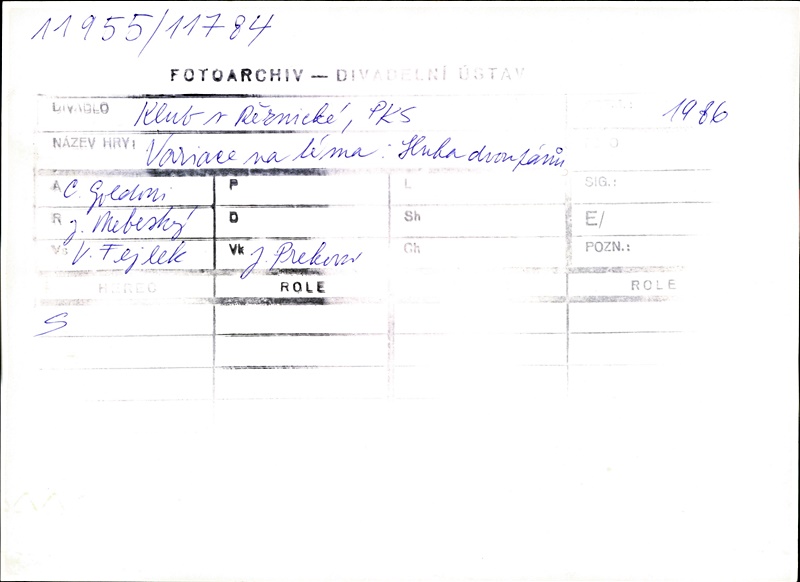 11955/11784
FOTOARCHIV — DIVADELNÍ ÚSTAV
DIVADLO Klub v Řeznické, PKS 1986
NÁZEV HRY: Variace na téma: Sluha dvou pánů
A C. Goldoni P L SIG.:
R J. Nebeský D Sh E/
Vs V. Fejlek Vk J. Prekova Ch POZN.:
HEREC ROLE ROLE
S